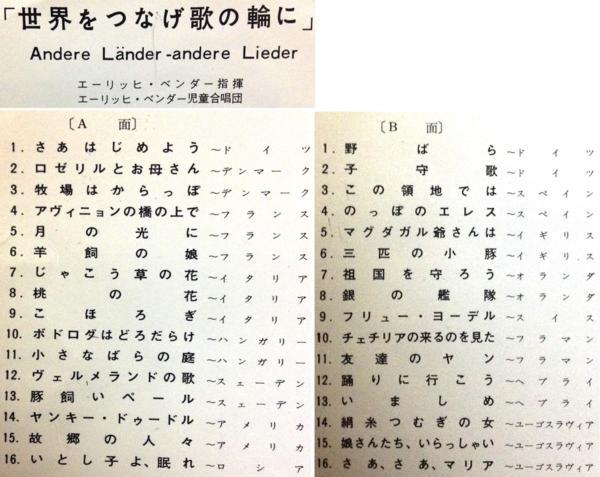 「世界をつなげ歌の輪に」
Andere Länder-andere Lieder
エーリッヒ・ベンダー指揮
エーリッヒ・ベンダー児童合唱団
〔A 面〕
1. さあはじめよう ～ドイツ
2. ロゼリルとお母さん ～デンマーク
3. 牧場はからっぽ ～デンマーク
4. アヴィニョンの橋の上で ～フランス
5. 月の光に ～フランス
6. 羊飼の娘 ～フランス
7. じゃこう草の花 ～イタリア
8. 桃の花 ～イタリア
9. こほろぎ ～イタリア
10. ボドロダはどろだらけ ～ハンガリー
11. 小さなばらの庭 ～ハンガリー
12. ヴェルメランドの歌 ～スェーデン
13. 豚飼いペール ～スェーデン
14. ヤンキー・ドゥードル ～アメリカ
15. 故郷の人々 ～アメリカ
16. いとし子よ、眠れ ～ロシア
〔B 面〕
1. 野ばら ～ドイツ
2. 子守歌 ～ドイツ
3. この領地では ～スペイン
4. のっぽのエレス ～スペイン
5. マグダガル爺さんは ～イギリス
6. 三匹の小豚 ～イギリス
7. 祖国を守ろう ～オランダ
8. 銀の艦隊 ～オランダ
9. フリュー・ヨーデル ～スイス
10. チェチリアの来るのを見た ～フラマン
11. 友達のヤン ～フラマン
12. 踊りに行こう ～ヘブライ
13. いましめ ～ヘブライ
14. 絹糸つむぎの女 ～ユーゴスラヴィア
15. 娘さんたち、いらっしゃい ～ユーゴスラヴィア
16. さあ、さあ、マリア ～ユーゴスラヴィア